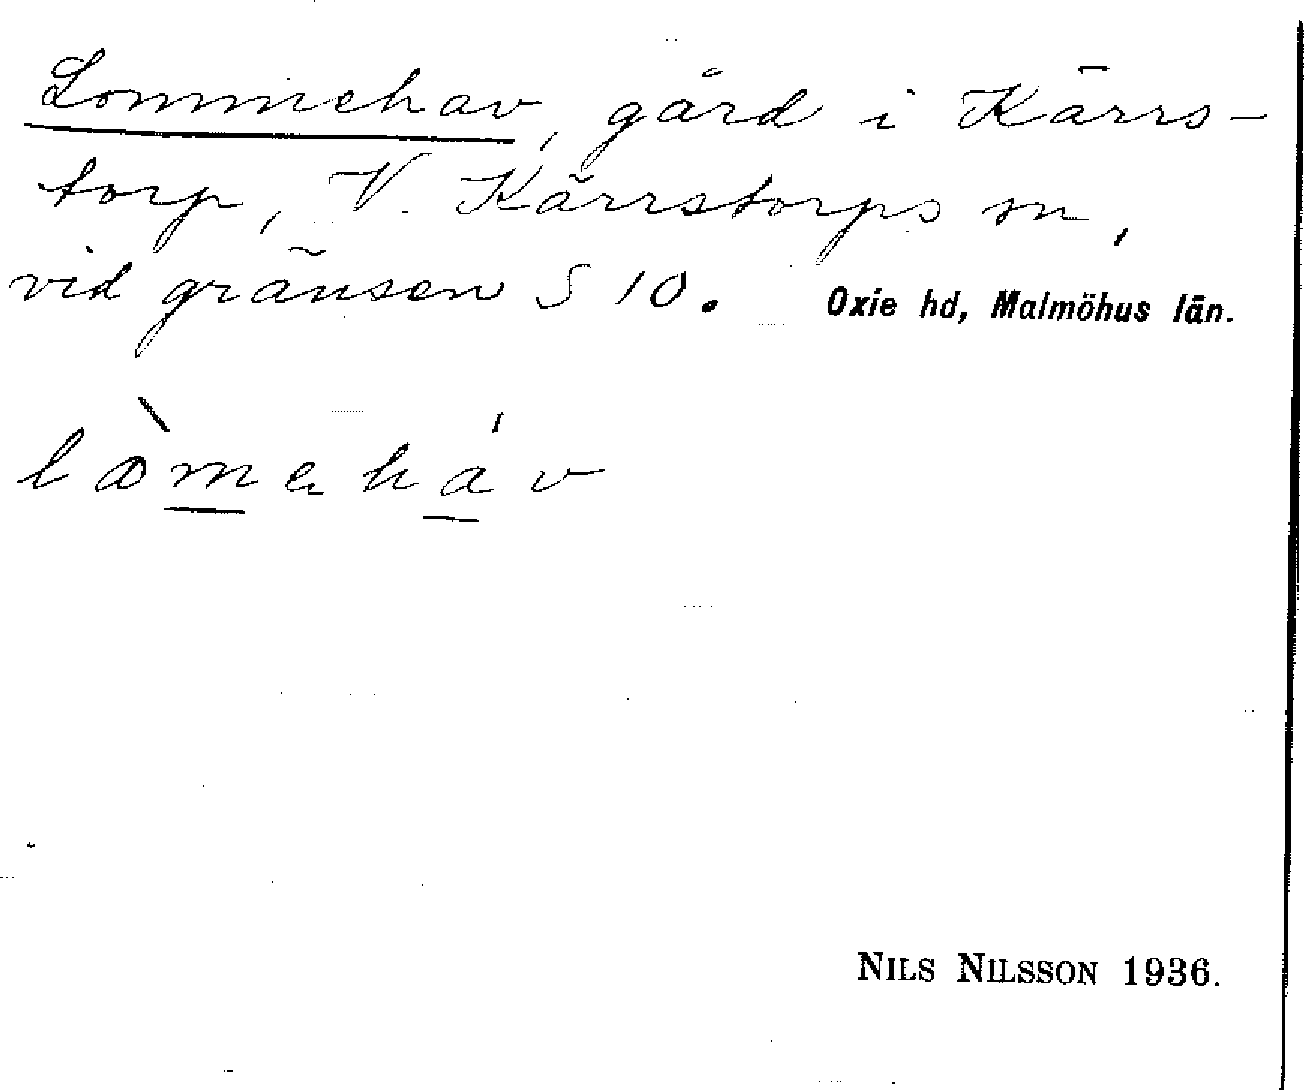 Lommehav, gård i Kärrs-
torp, V. Kärrstorps sn,
vid gränsen S 10. Oxie hd, Malmöhus län.
lòmeháv
NILS NILSSON 1936.